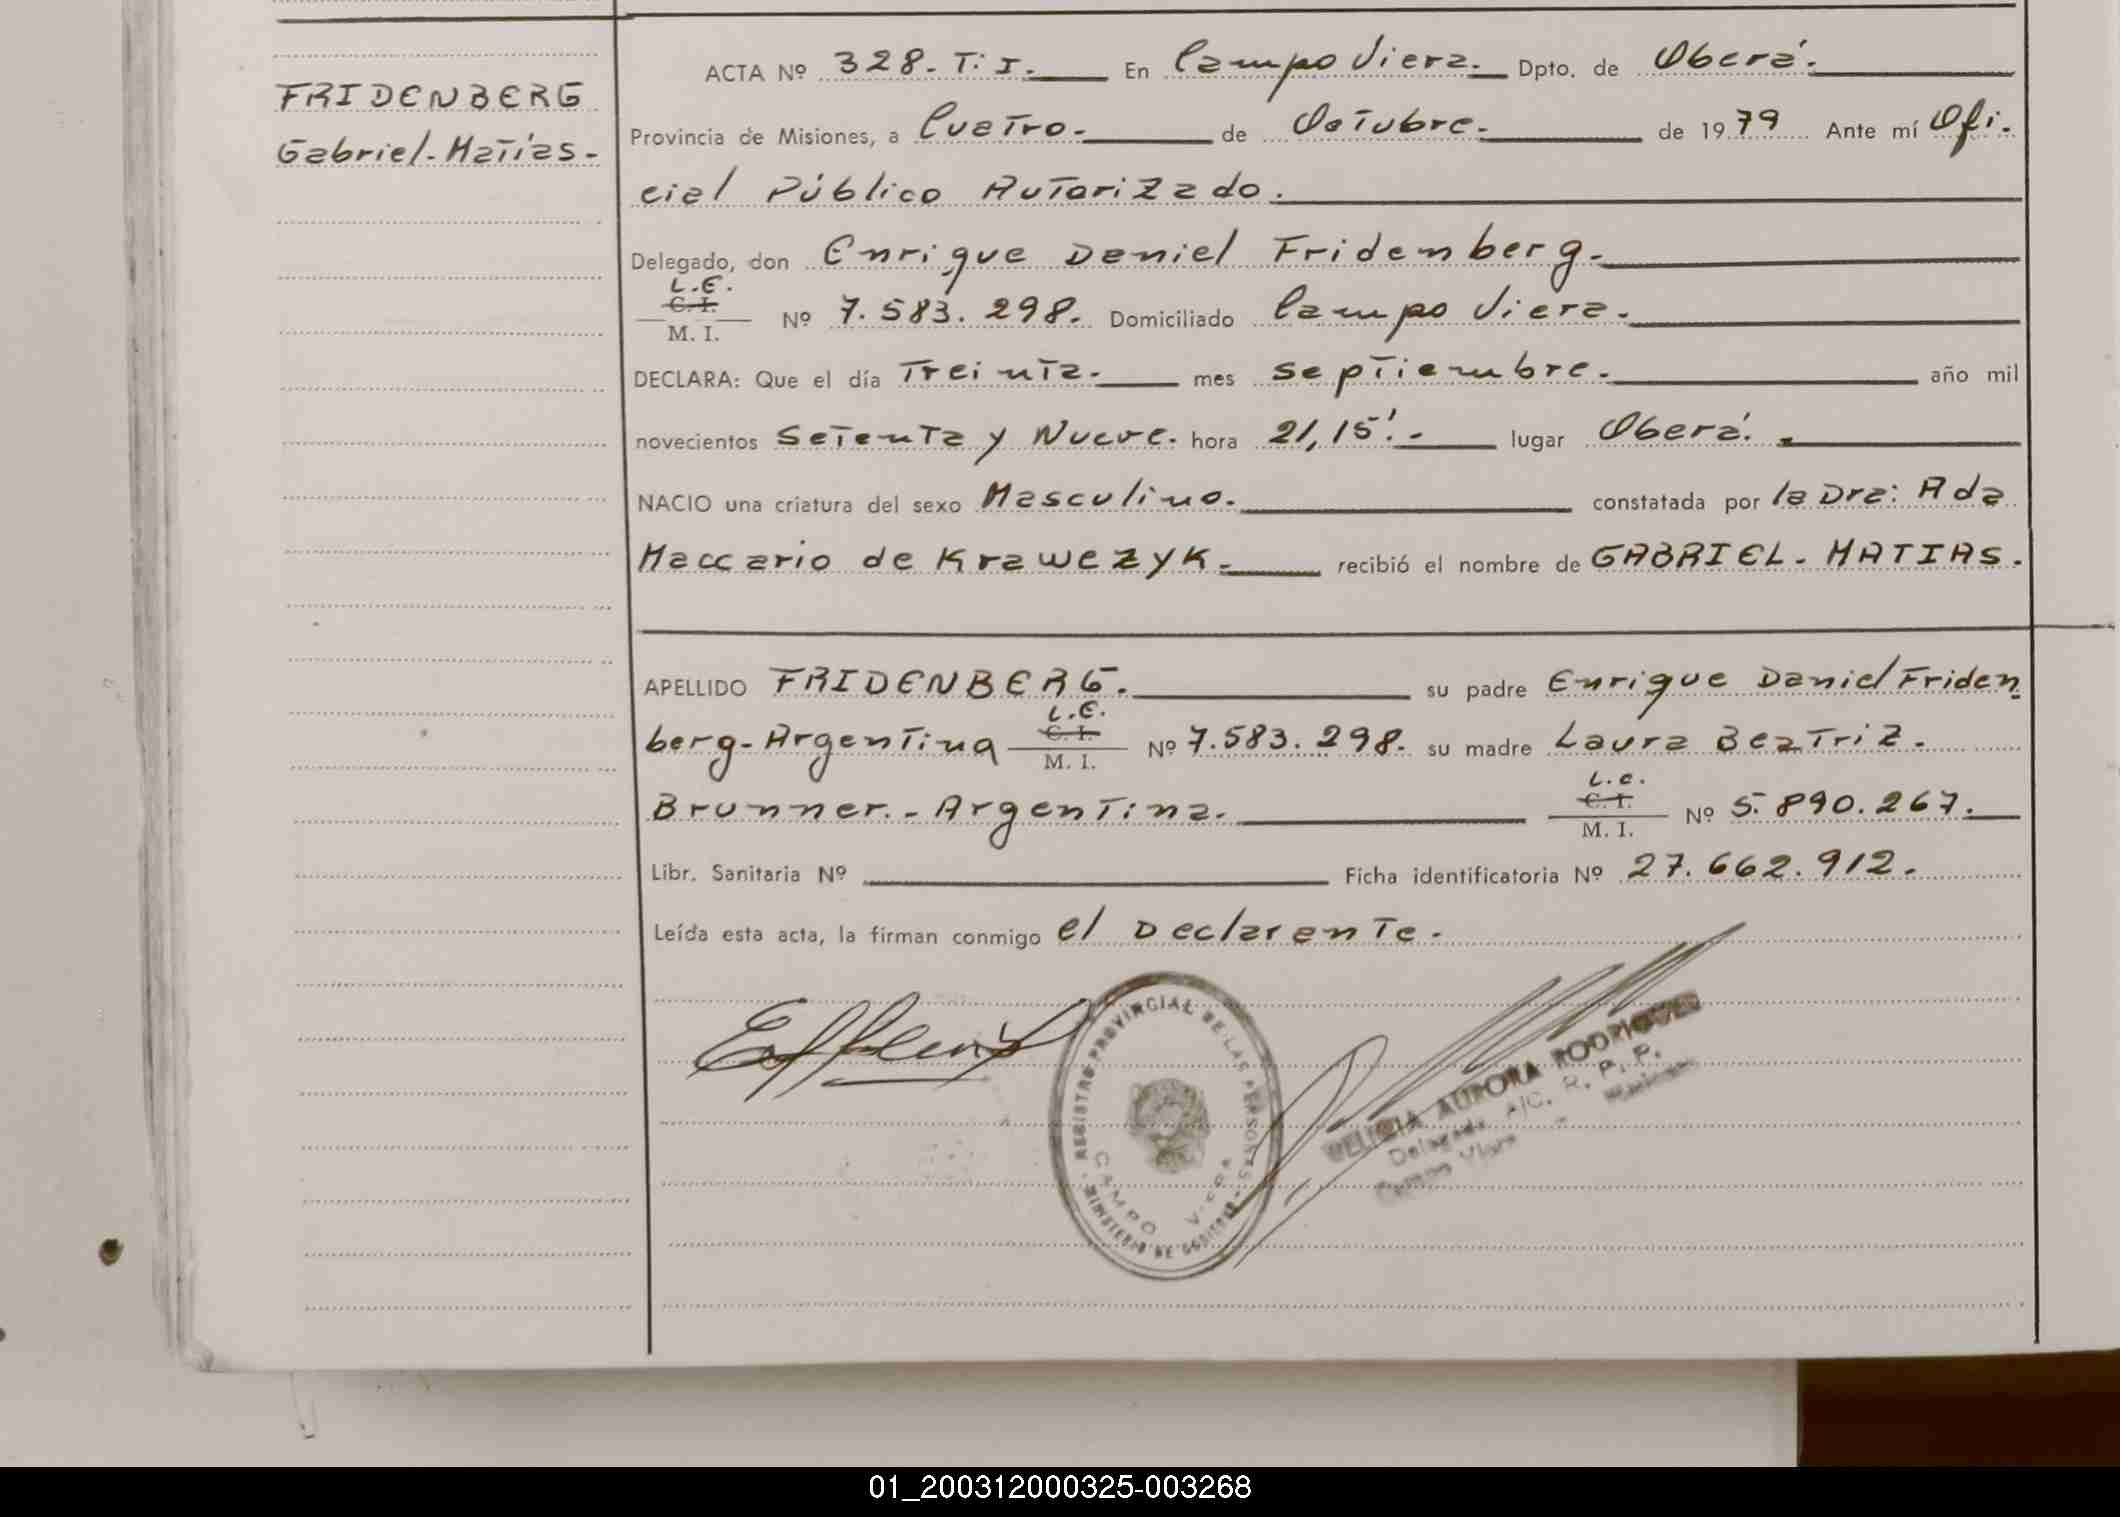 FRIDENBERG
Gabriel-Matías-
ACTA Nº 328. T. I. En Campo Viera. Dpto. de Oberá.
Provincia de Misiones, a Cuatro. de Octubre. de 1979 Ante mí Ofi.
cial Público Autorizado.
Delegado, don Enrique Daniel Fridemberg.
L.E.
C. I.
M. I. Nº 7.583.298. Domiciliado Campo Viera.
DECLARA: Que el día Treinta. mes Septiembre. año mil
novecientos Setenta y Nueve. hora 21,15'.- lugar Oberá.
NACIO una criatura del sexo Masculino. constatada por la Dra: Ada
Maccario de Krawczyk. recibió el nombre de GABRIEL-MATIAS.
APELLIDO FRIDENBERG. su padre Enrique Daniel Friden
L.E.
C. I.
berg-Argentina M. I. Nº 7.583.298. su madre Laura Beatriz.
L.C.
C. I.
Brunner.-Argentina. M. I. Nº 5.890.267.
Libr. Sanitaria Nº Ficha identificatoria Nº 27.662.912.
Leída esta acta, la firman conmigo el Declarante.
REGISTRO PROVINCIAL DE LAS PERSONAS
CAMPO VIERA
MINISTERIO DE GOBIERNO
DELICIA AURORA RODRIGUEZ
Delegada A/C. R. P. P.
Campo Viera - Misiones
01_200312000325-003268